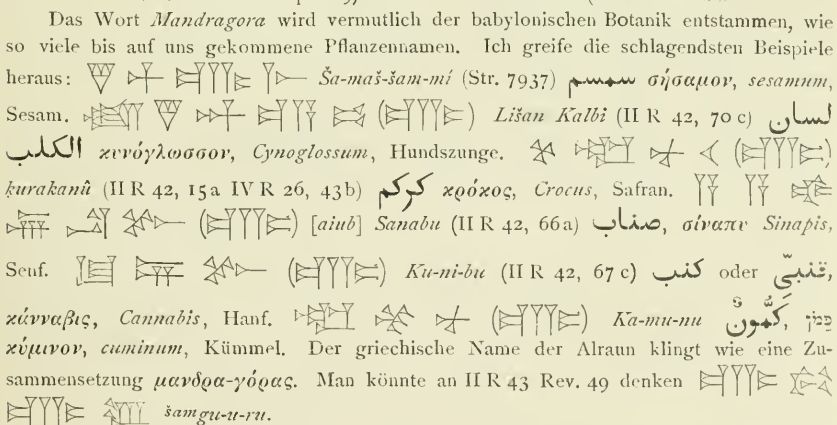 Das Wort Mandragora wird vermutlich der babylonischen Botanik entstammen, wie
so viele bis auf uns gekommene Pflanzennamen. Ich greife die schlagendsten Beispiele
heraus: Ša-maš-šam-mí (Str. 7937) سمسم σήσαμον, sesamum,
Sesam. Lišan Kalbi (II R 42, 70 c) لسان
الكلب κυνόγλωσσον, Cynoglossum, Hundszunge.
ḳurakanû (II R 42, 15a IV R 26, 43b) كركم κρόκος, Crocus, Safran.
[aiub] Sanabu (II R 42, 66a) صناب, σίναπν Sinapis,
Senf. Ku-ni-bu (II R 42, 67 c) كنب oder قنّبىّ,
κάνναβις, Cannabis, Hanf. Ka-mu-nu كَمُّونٌ, כמן
κύμινον, cuminum, Kümmel. Der griechische Name der Alraun klingt wie eine Zu-
sammensetzung μανδρα-γόρας. Man könnte an II R 43 Rev. 49 denken
šamgu-u-ru.